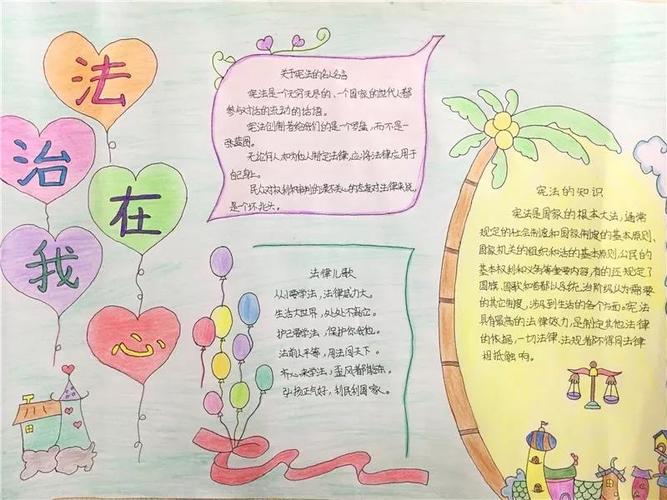 法
治
在
我
心
关于宪法的名人名言
宪法是一个无穷无尽的、一个国家的世代人都
参与对话的流动的话语。
宪法创制者给我们的是一个罗盘，而不是一
张蓝图。
无论何人，如为他人制定法律，应将法律应用于
自己身上。
民众对权利和审判的漠不关心的态度对法律来说，
是个坏兆头。
法律儿歌
从小要学法，法律威力大。
生活大世界，处处不离它。
护己要学法，保护你我他。
法前人平等，用法闯天下。
齐心来学法，歪风都
弘扬正气好，利民利国家。
宪法的知识
宪法是国家的根本大法，通常
规定的社会制度和国家制度的基本原则、
国家机关的组织和活的基本原则，公民的
基本权利和义务等重要内容，有的还规定了
国旗、国歌和首都以及统治阶级认为需要
的其它制度，涉及到生活的各个方面。宪法
具有最高的法律效力，是制定其他法律
的依据，一切法律、法规都不得同法律
相抵触